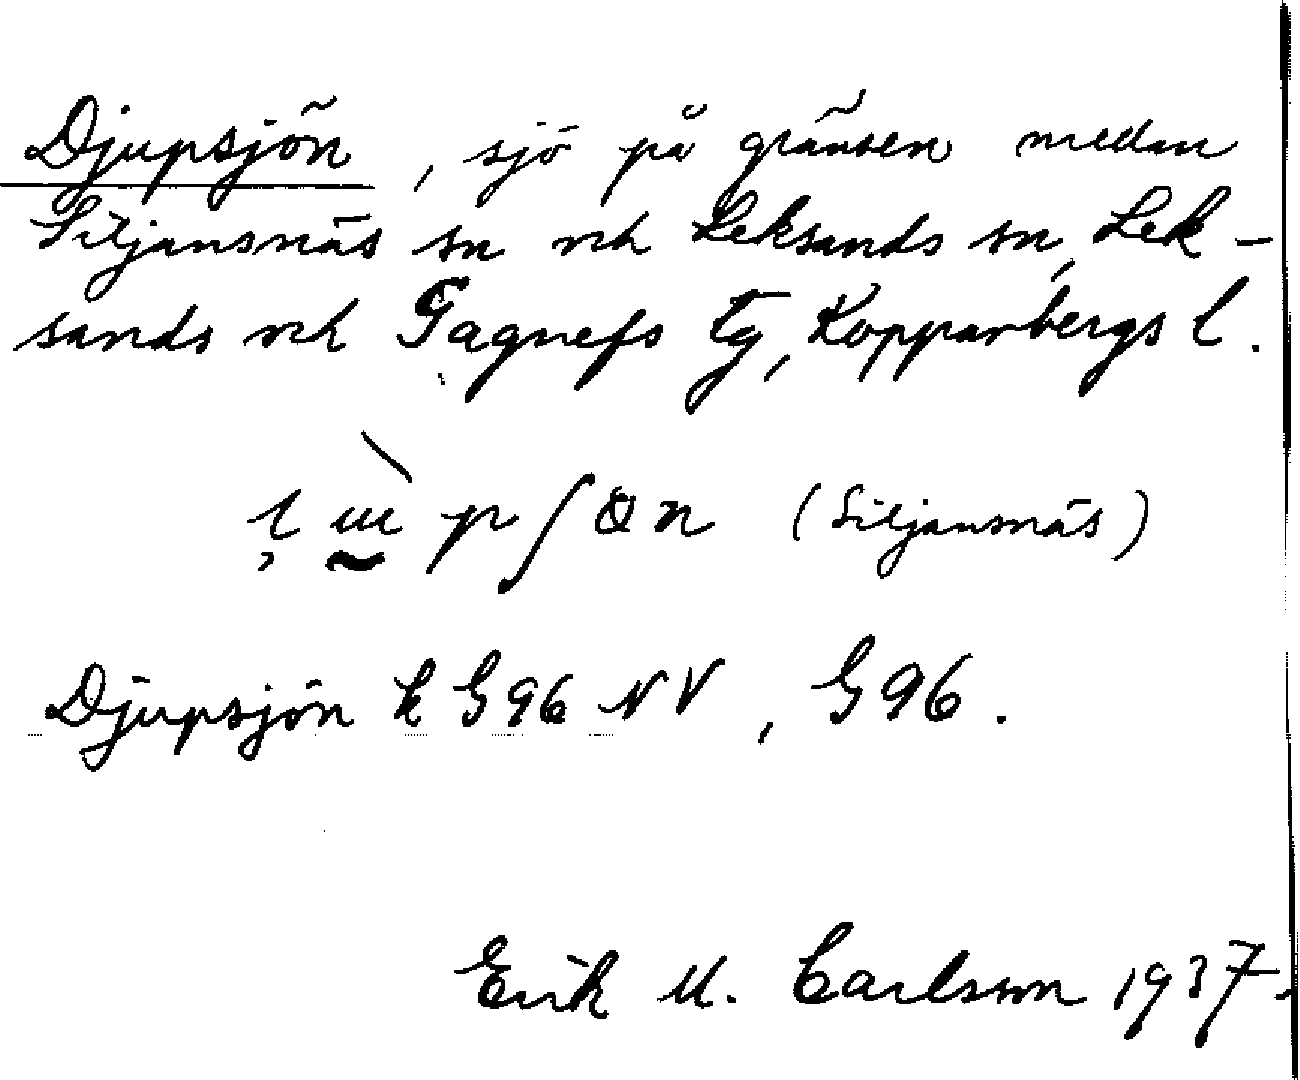 Djupsjön, sjö på gränsen medan
Siljansnäs sn och Leksands sn, Lek-
sands och Gagnefs tg, Kopparbergs l.
(Siljansnäs)
Djupsjön k G96 NV, G 96.
Erik M. Carlsson 1937.